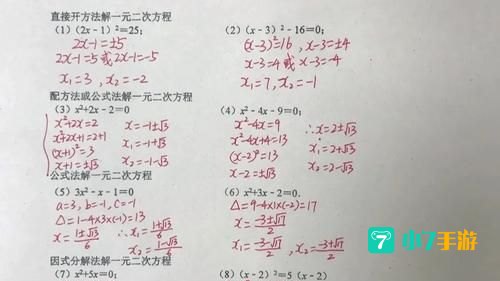 直接开方法解一元二次方程
(1) (2x-1)²=25;
2x-1=±5
2x-1=5或2x-1=-5
x₁=3, x₂=-2
(2) (x-3)²-16=0;
(x-3)²=16, x-3=±4
x-3=4或x-3=-4
x₁=7, x₂=-1
配方法或公式法解一元二次方程
(3) x²+2x-2=0
x²+2x=2
x²+2x+1=2+1
(x+1)²=3
x+1=±√3
x=-1±√3
x₁=-1+√3
x₂=-1-√3
(4) x²-4x-9=0;
x²-4x=9
x²-4x+4=13
(x-2)²=13
x-2=±√13
∴x=2±√13
x₁=2+√13
x₂=2-√13
公式法解一元二次方程
(5) 3x²-x-1=0
a=3, b=-1, c=-1
△=1-4×3×(-1)=13
x=(1±√13)/6
∴x₁=(1+√13)/6
x₂=(1-√13)/6
(6) x²+3x-2=0.
△=9-4×1×(-2)=17
x=(-3±√17)/2
x₁=(-3-√17)/2, x₂=(-3+√17)/2
因式分解法解一元二次方程
(7) x²+5x=0;
(8) (x-2)²=5(x-2)
7
手游